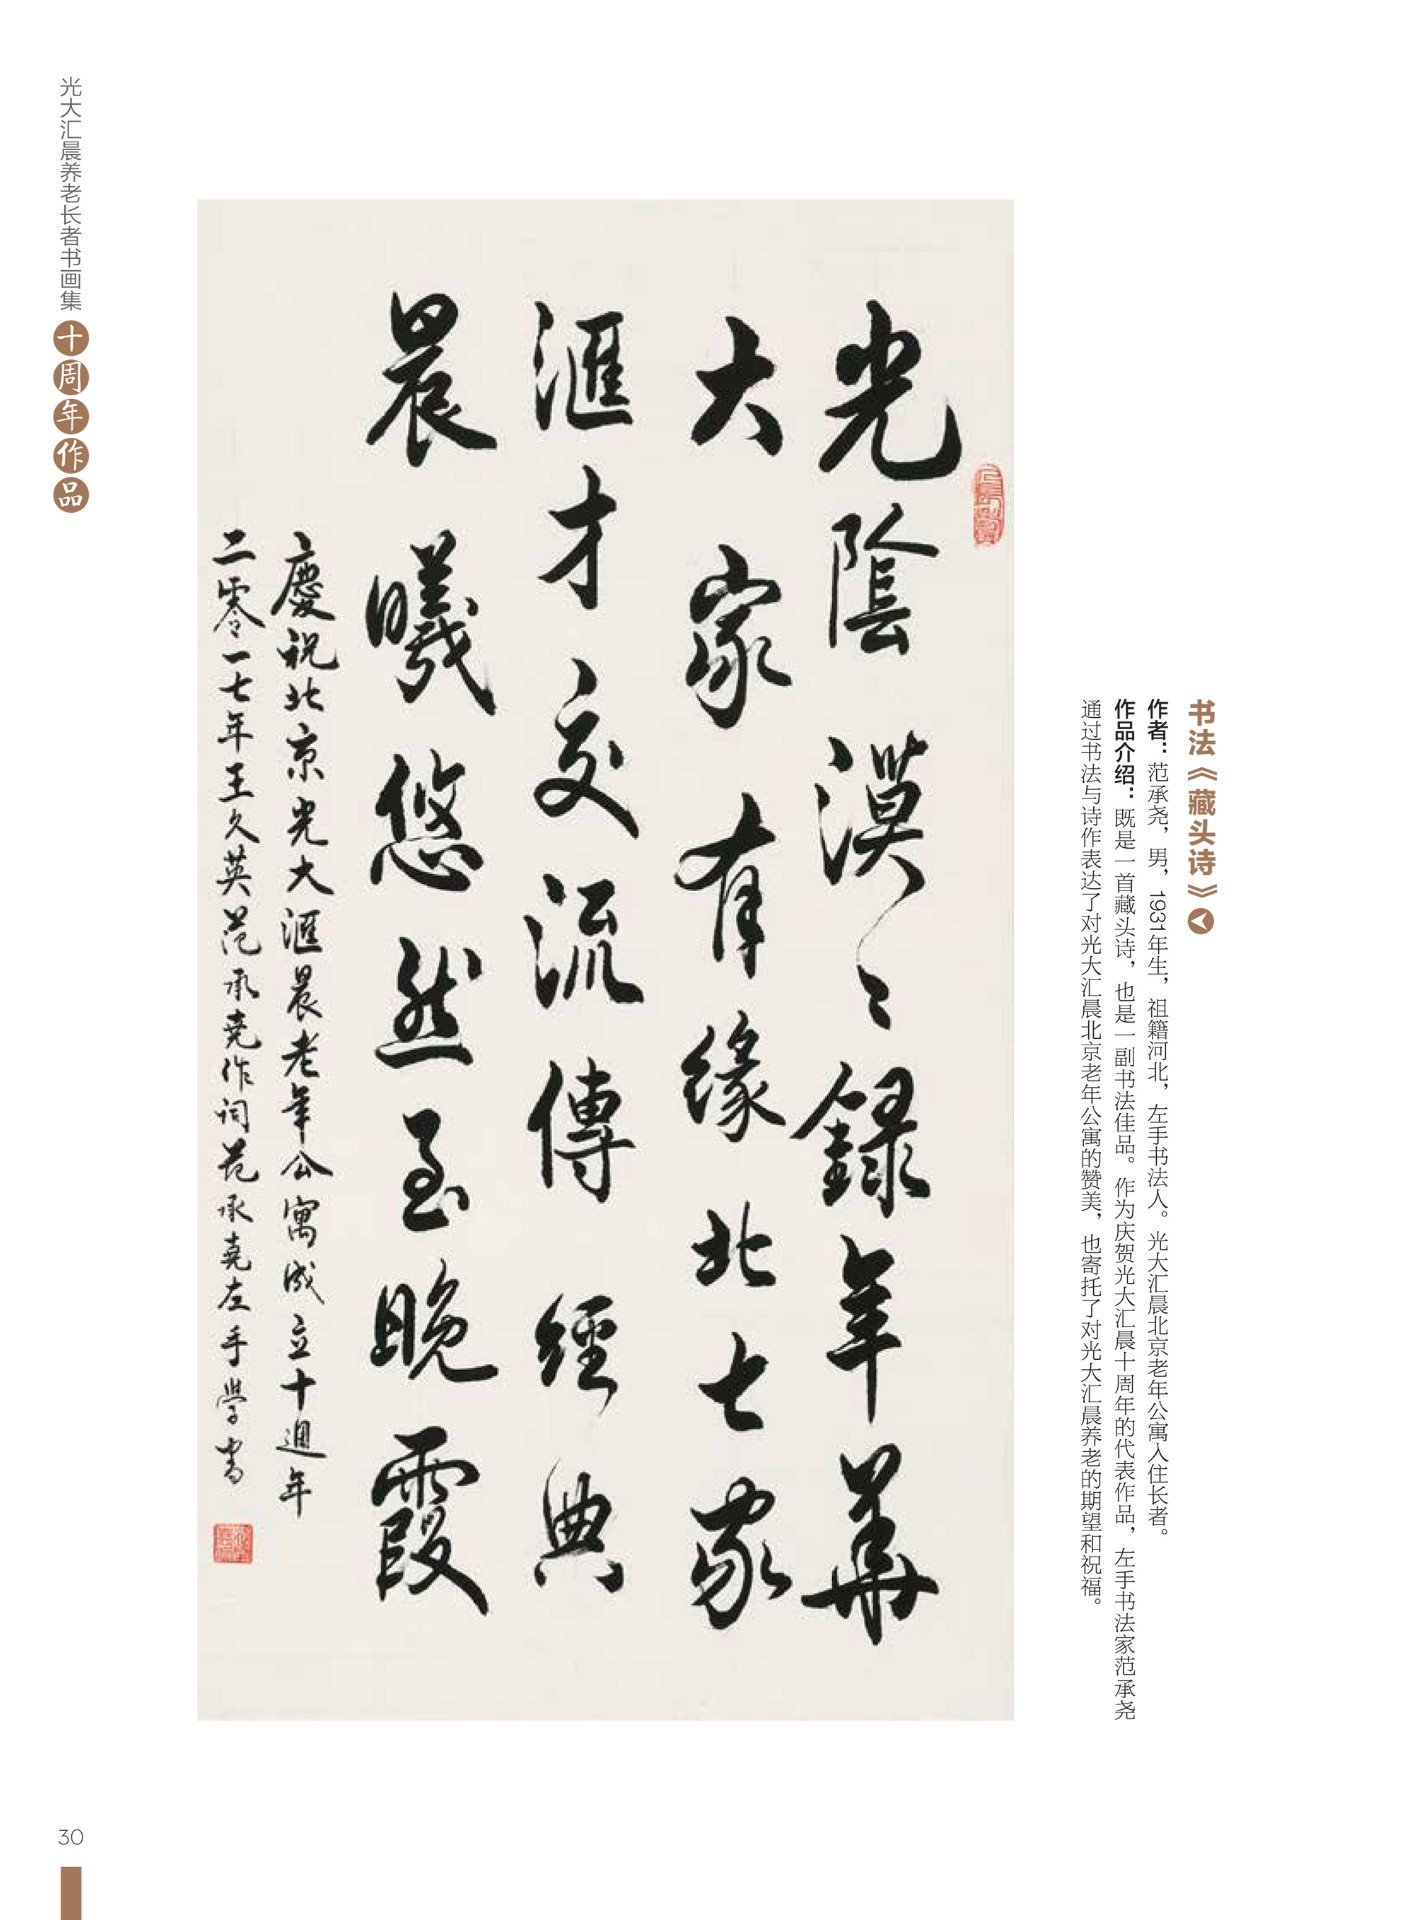 光大汇晨养老长者书画集 十周年作品
书法《藏头诗》
作者：范承尧，男，1931年生，祖籍河北，左手书法人。光大汇晨北京老年公寓入住长者。
作品介绍：既是一首藏头诗，也是一副书法佳品。作为庆贺光大汇晨十周年的代表作品，左手书法家范承尧
通过书法与诗作表达了对光大汇晨北京老年公寓的赞美，也寄托了对光大汇晨养老的期望和祝福。
光陰漠〻録年華
大家有緣北七家
滙才交流傳經典
晨曦悠然至晚霞
慶祝北京光大滙晨老年公寓成立十週年
二零一七年王久英范承堯作词范承堯左手學書
30